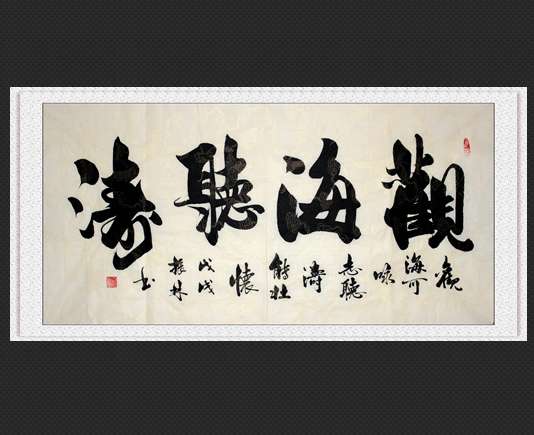 觀海聽濤
观海可咏志聽濤能壯懷
戊戌振林书